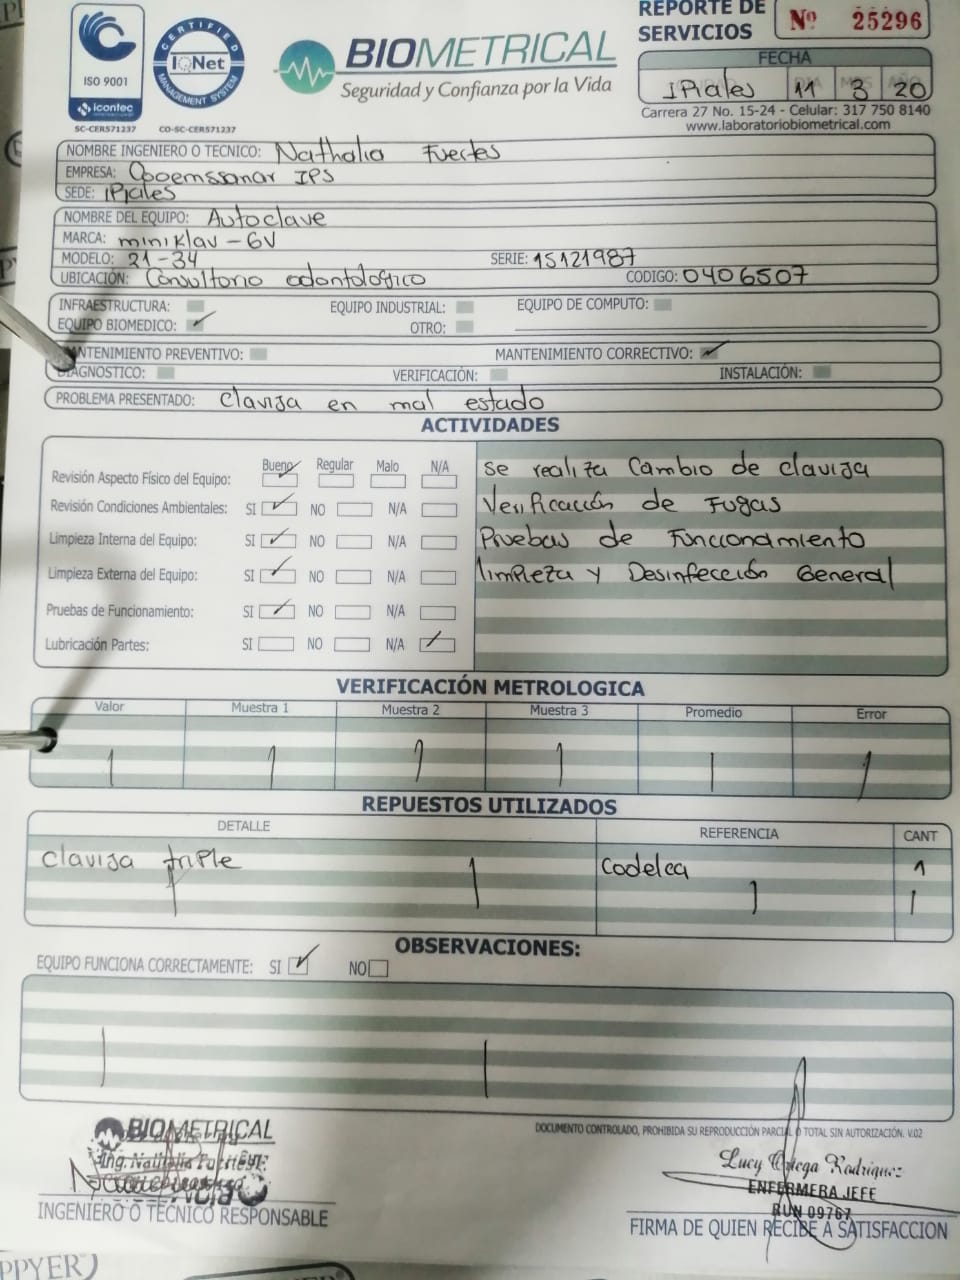 REPORTE DE
SERVICIOS
Nº 25296
ISO 9001
icontec
SC-CER571237
CERTIFIED
IQNet
MANAGEMENT SYSTEM
CO-SC-CER571237
BIOMETRICAL
Seguridad y Confianza por la Vida
FECHA
IPiales 11 3 20
Carrera 27 No. 15-24 - Celular: 317 750 8140
www.laboratoriobiometrical.com
NOMBRE INGENIERO O TECNICO: Nathalia Fuertes
EMPRESA: Cooemssanar IPS
SEDE: IPiales
NOMBRE DEL EQUIPO: Autoclave
MARCA: miniKlav - 6V
MODELO: 21-34 SERIE: 15121987
UBICACIÓN: Consultorio odontologico CODIGO: 0406507
INFRAESTRUCTURA: EQUIPO INDUSTRIAL: EQUIPO DE COMPUTO:
EQUIPO BIOMEDICO: ✓ OTRO:
MANTENIMIENTO PREVENTIVO: MANTENIMIENTO CORRECTIVO: ✓
DIAGNOSTICO: VERIFICACIÓN: INSTALACIÓN:
PROBLEMA PRESENTADO: Clavija en mal estado
ACTIVIDADES
Bueno Regular Malo N/A
Revisión Aspecto Físico del Equipo:
Revisión Condiciones Ambientales: SI ✓ NO N/A
Limpieza Interna del Equipo: SI ✓ NO N/A
Limpieza Externa del Equipo: SI ✓ NO N/A
Pruebas de Funcionamiento: SI ✓ NO N/A
Lubricación Partes: SI NO N/A ✓
Se realiza Cambio de clavija
Verificación de Fugas
Pruebas de Funcionamiento
limpieza y Desinfección General
VERIFICACIÓN METROLOGICA
Valor Muestra 1 Muestra 2 Muestra 3 Promedio Error
REPUESTOS UTILIZADOS
DETALLE REFERENCIA CANT
Clavija triple Codelca 1
OBSERVACIONES:
EQUIPO FUNCIONA CORRECTAMENTE: SI ✓ NO
DOCUMENTO CONTROLADO, PROHIBIDA SU REPRODUCCIÓN PARCIAL O TOTAL SIN AUTORIZACIÓN. V.02
BIOMETRICAL
Ing. Nathalia Fuertes
INGENIERO O TECNICO RESPONSABLE
Lucy Ortega Rodriguez
ENFERMERA JEFE
RUN 09767
FIRMA DE QUIEN RECIBE A SATISFACCION
PPYER